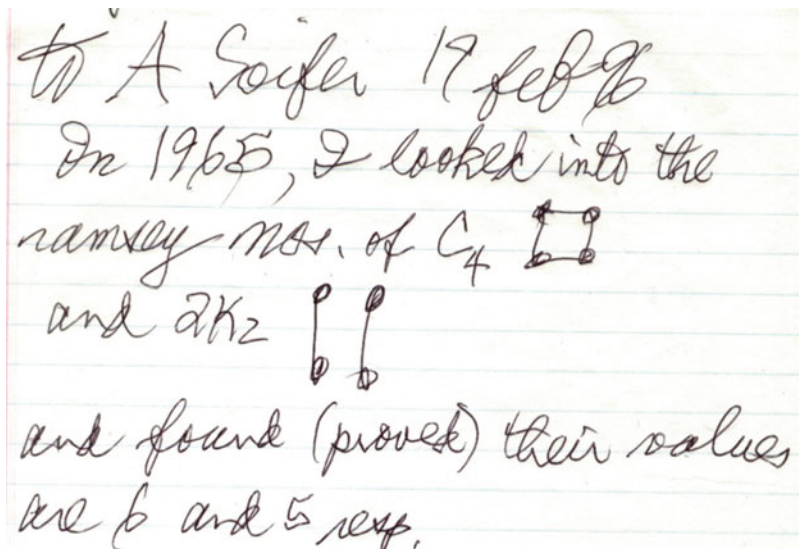 to A Soifer 19 feb 96
In 1965, I looked into the
ramsey nos. of C₄
and 2K₂
and found (proved) their values
are 6 and 5 resp.